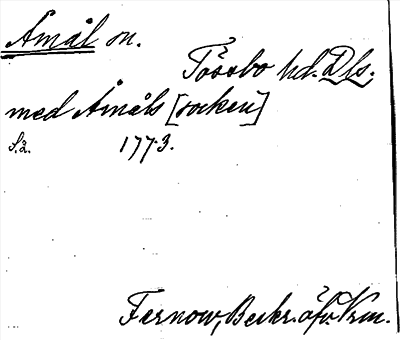 Åmål sn.
Tössbo hd. Dls.
med Åmåls [socken]
S.2. 1773.
Fernow, Beskr. öfv. Vrm.